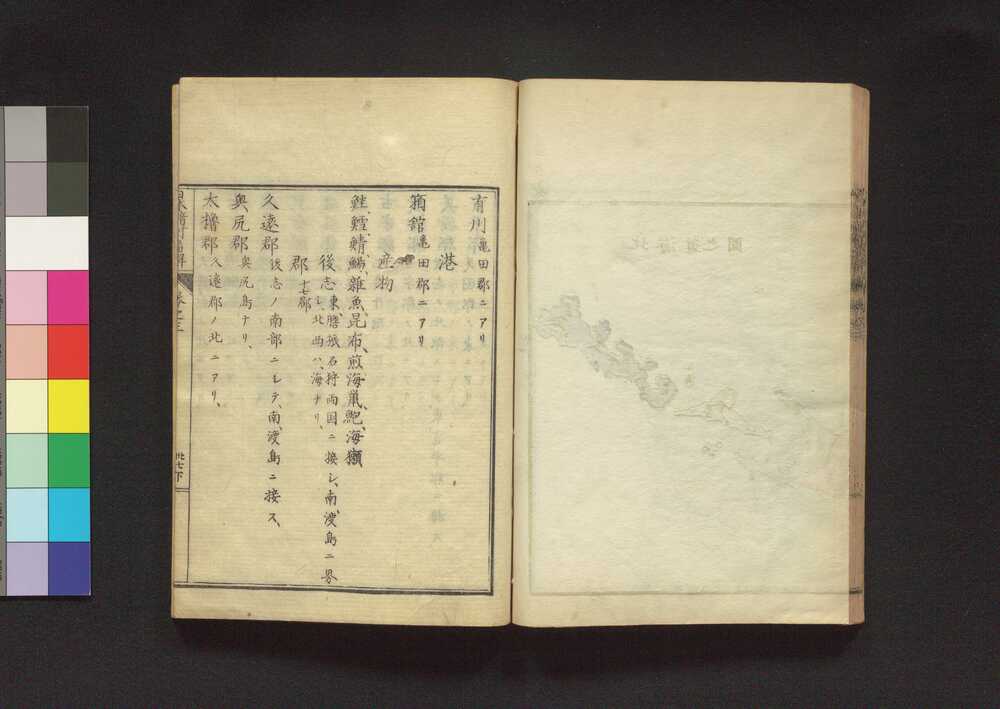 有川亀田郡ニアリ
港
箱館亀田郡ニアリ
産物
鮭、鱈、鯖、鰯、雑魚、昆布、煎海鼠、鮑、海獺
後志東、膽振石狩両国ニ接シ、南、渡島ニ界
シ、北西ハ、海ナリ、
郡十七郡
久遠郡後志ノ南部ニシテ、南、渡島ニ接ス、
奥尻郡奥尻島ナリ、
太櫓郡久遠郡ノ北ニアリ、
巻之三
北七下
北海道之図